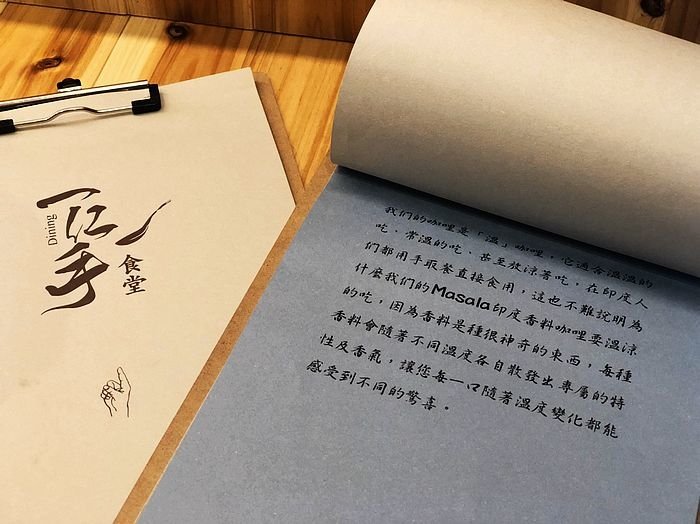 Dining
食堂
我們的咖哩是「溫」咖哩，它適合溫溫的
吃、常溫的吃、甚至放涼著吃，在印度人
們都用手取餐直接食用，這也不難說明為
什麼我們的Masala印度香料咖哩要溫涼
的吃，因為香料是種很神奇的東西，每種
香料會隨著不同溫度各自散發出專屬的特
性及香氣，讓您每一口隨著溫度變化都能
感受到不同的驚喜。